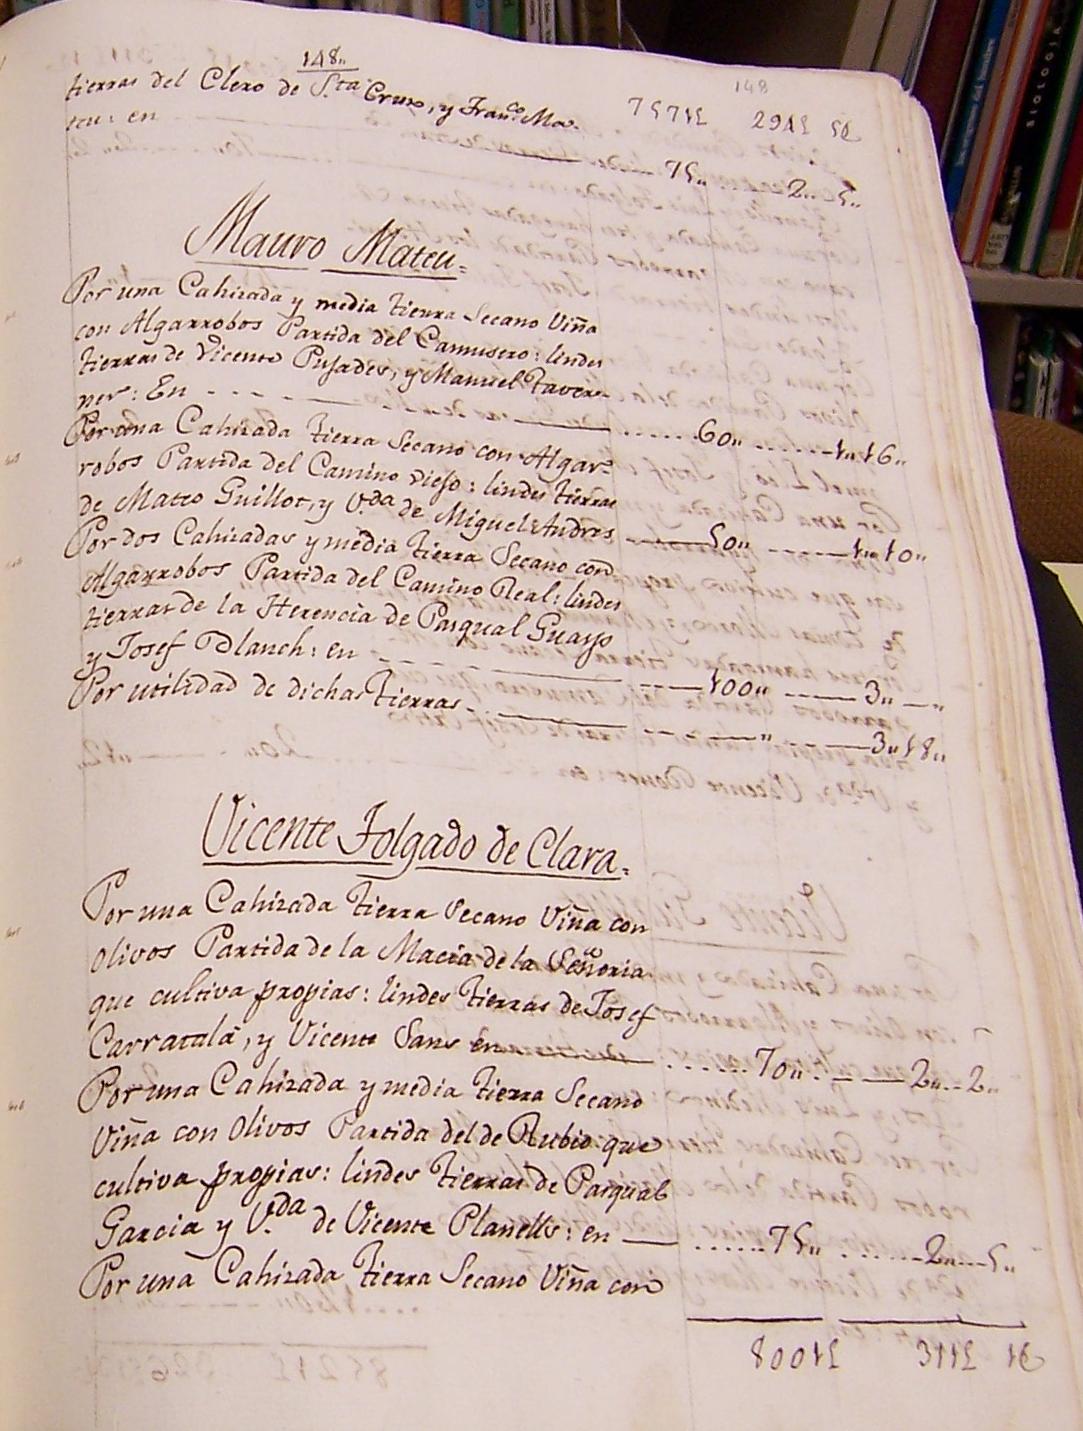 148„
148
tierras del Clero de S.ta Cruz, y Fran.co Ma- 7571£ 294£ 5
teu: en 75„ 2„ 5„
Mauro Mateu.
Por una Cahizada y media tierra Secano Viña
con Algarrobos Partida del Camusero: lindes
tierras de Vicente Pujades, y Manuel Taver-
ner: En 60„ 1„16„
Por una Cahizada tierra Secano con Algar-
robos Partida del Camino viejo: lindes tierras
de Mateo Guillot, y V.da de Miguel Andres 50„ 1„10„
Por dos Cahizadas y media tierra Secano con
Algarrobos Partida del Camino Real: lindes
tierras de la Herencia de Pasqual Guayo
y Josef Blanch: en 100„ 3„ „
Por utilidad de dichas tierras „ 3„18„
Vicente Folgado de Clara.
Por una Cahizada tierra Secano Viña con
Olivos Partida de la Macia de la Señoria
que cultiva propias: lindes tierras de Josef
Carratalá, y Vicente Sans en 70„ 2„ 2„
Por una Cahizada y media tierra Secano
Viña con Olivos Partida del de Rubio que
cultiva propias: lindes tierras de Pasqual
Garcia y V.da de Vicente Planells: en 75„ 2„ 5„
Por una Cahizada tierra Secano Viña con
8001£ 311£ 1